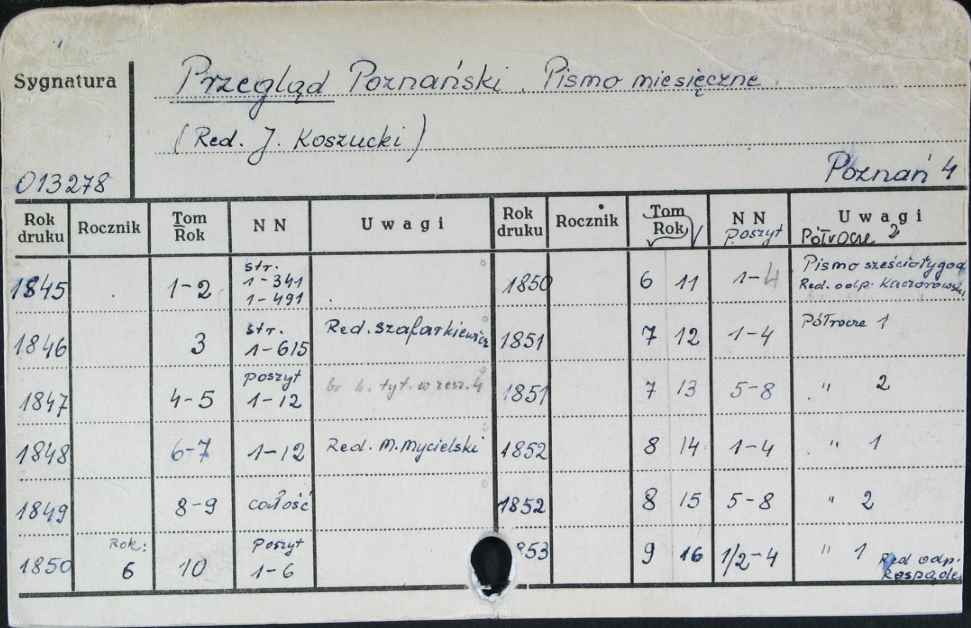 Sygnatura
Przegląd Poznański. Pismo miesięczne.
(Red. J. Koszucki)
013278
Poznań 4
Rok druku Rocznik Tom Rok NN Uwagi
Rok druku Rocznik Tom Rok NN poszyt Uwagi Półrocze 2
1845 1-2 str. 1-341 1-491
1846 3 str. 1-615 Red. Szafarkiewicz
1847 4-5 poszyt 1-12 br k. tyt. w zesz. 4
1848 6-7 1-12 Red. M. Mycielski
1849 8-9 całość
1850 Rok: 6 10 Poszyt 1-6
1850 6 11 1-4 Pismo sześciotygod Red. odp.
1851 7 12 1-4 Półrocze 1
1851 7 13 5-8 " 2
1852 8 14 1-4 " 1
1852 8 15 5-8 " 2
853 9 16 1/2-4 " 1 Red odp.